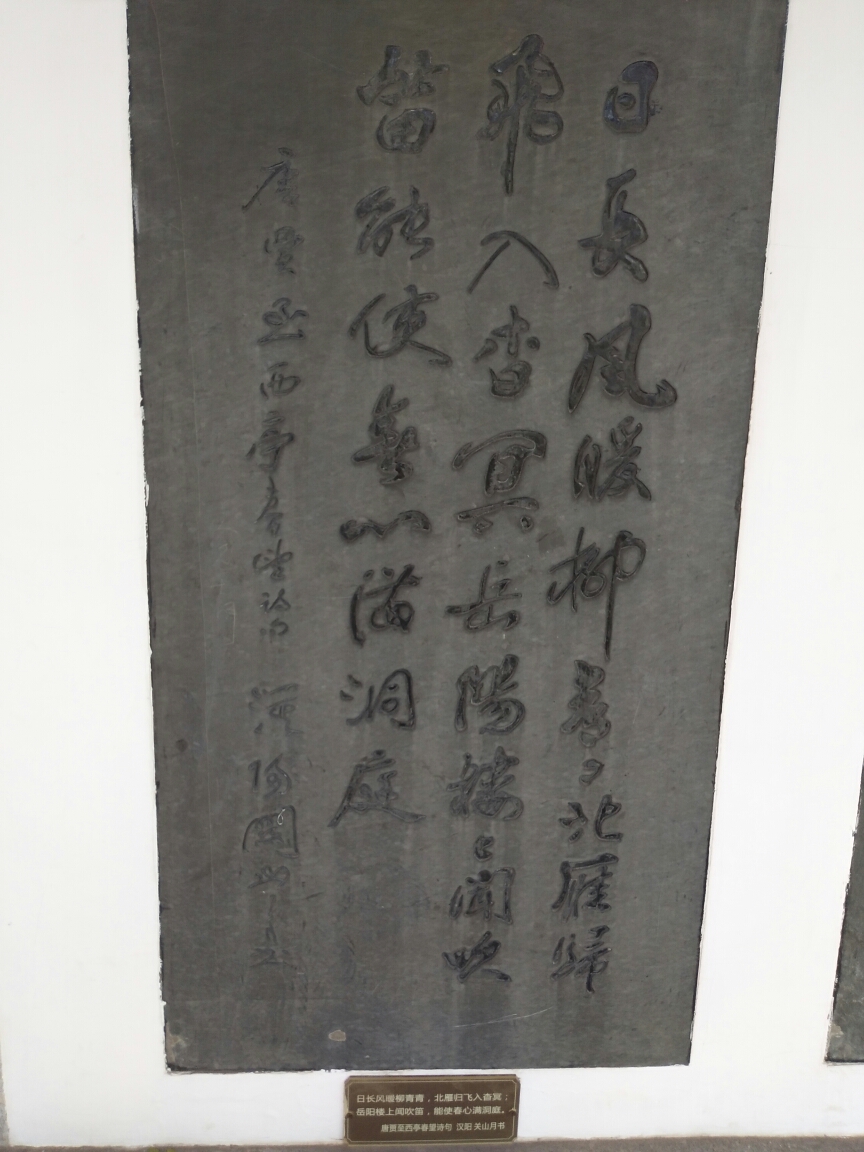 日長風暖柳青々北雁歸
飛入杳冥岳陽樓上聞吹
笛能使春心滿洞庭
唐賈至西亭春望詩句 漢陽關山月書
日长风暖柳青青，北雁归飞入杳冥；
岳阳楼上闻吹笛，能使春心满洞庭。
唐贾至西亭春望诗句 汉阳 关山月书